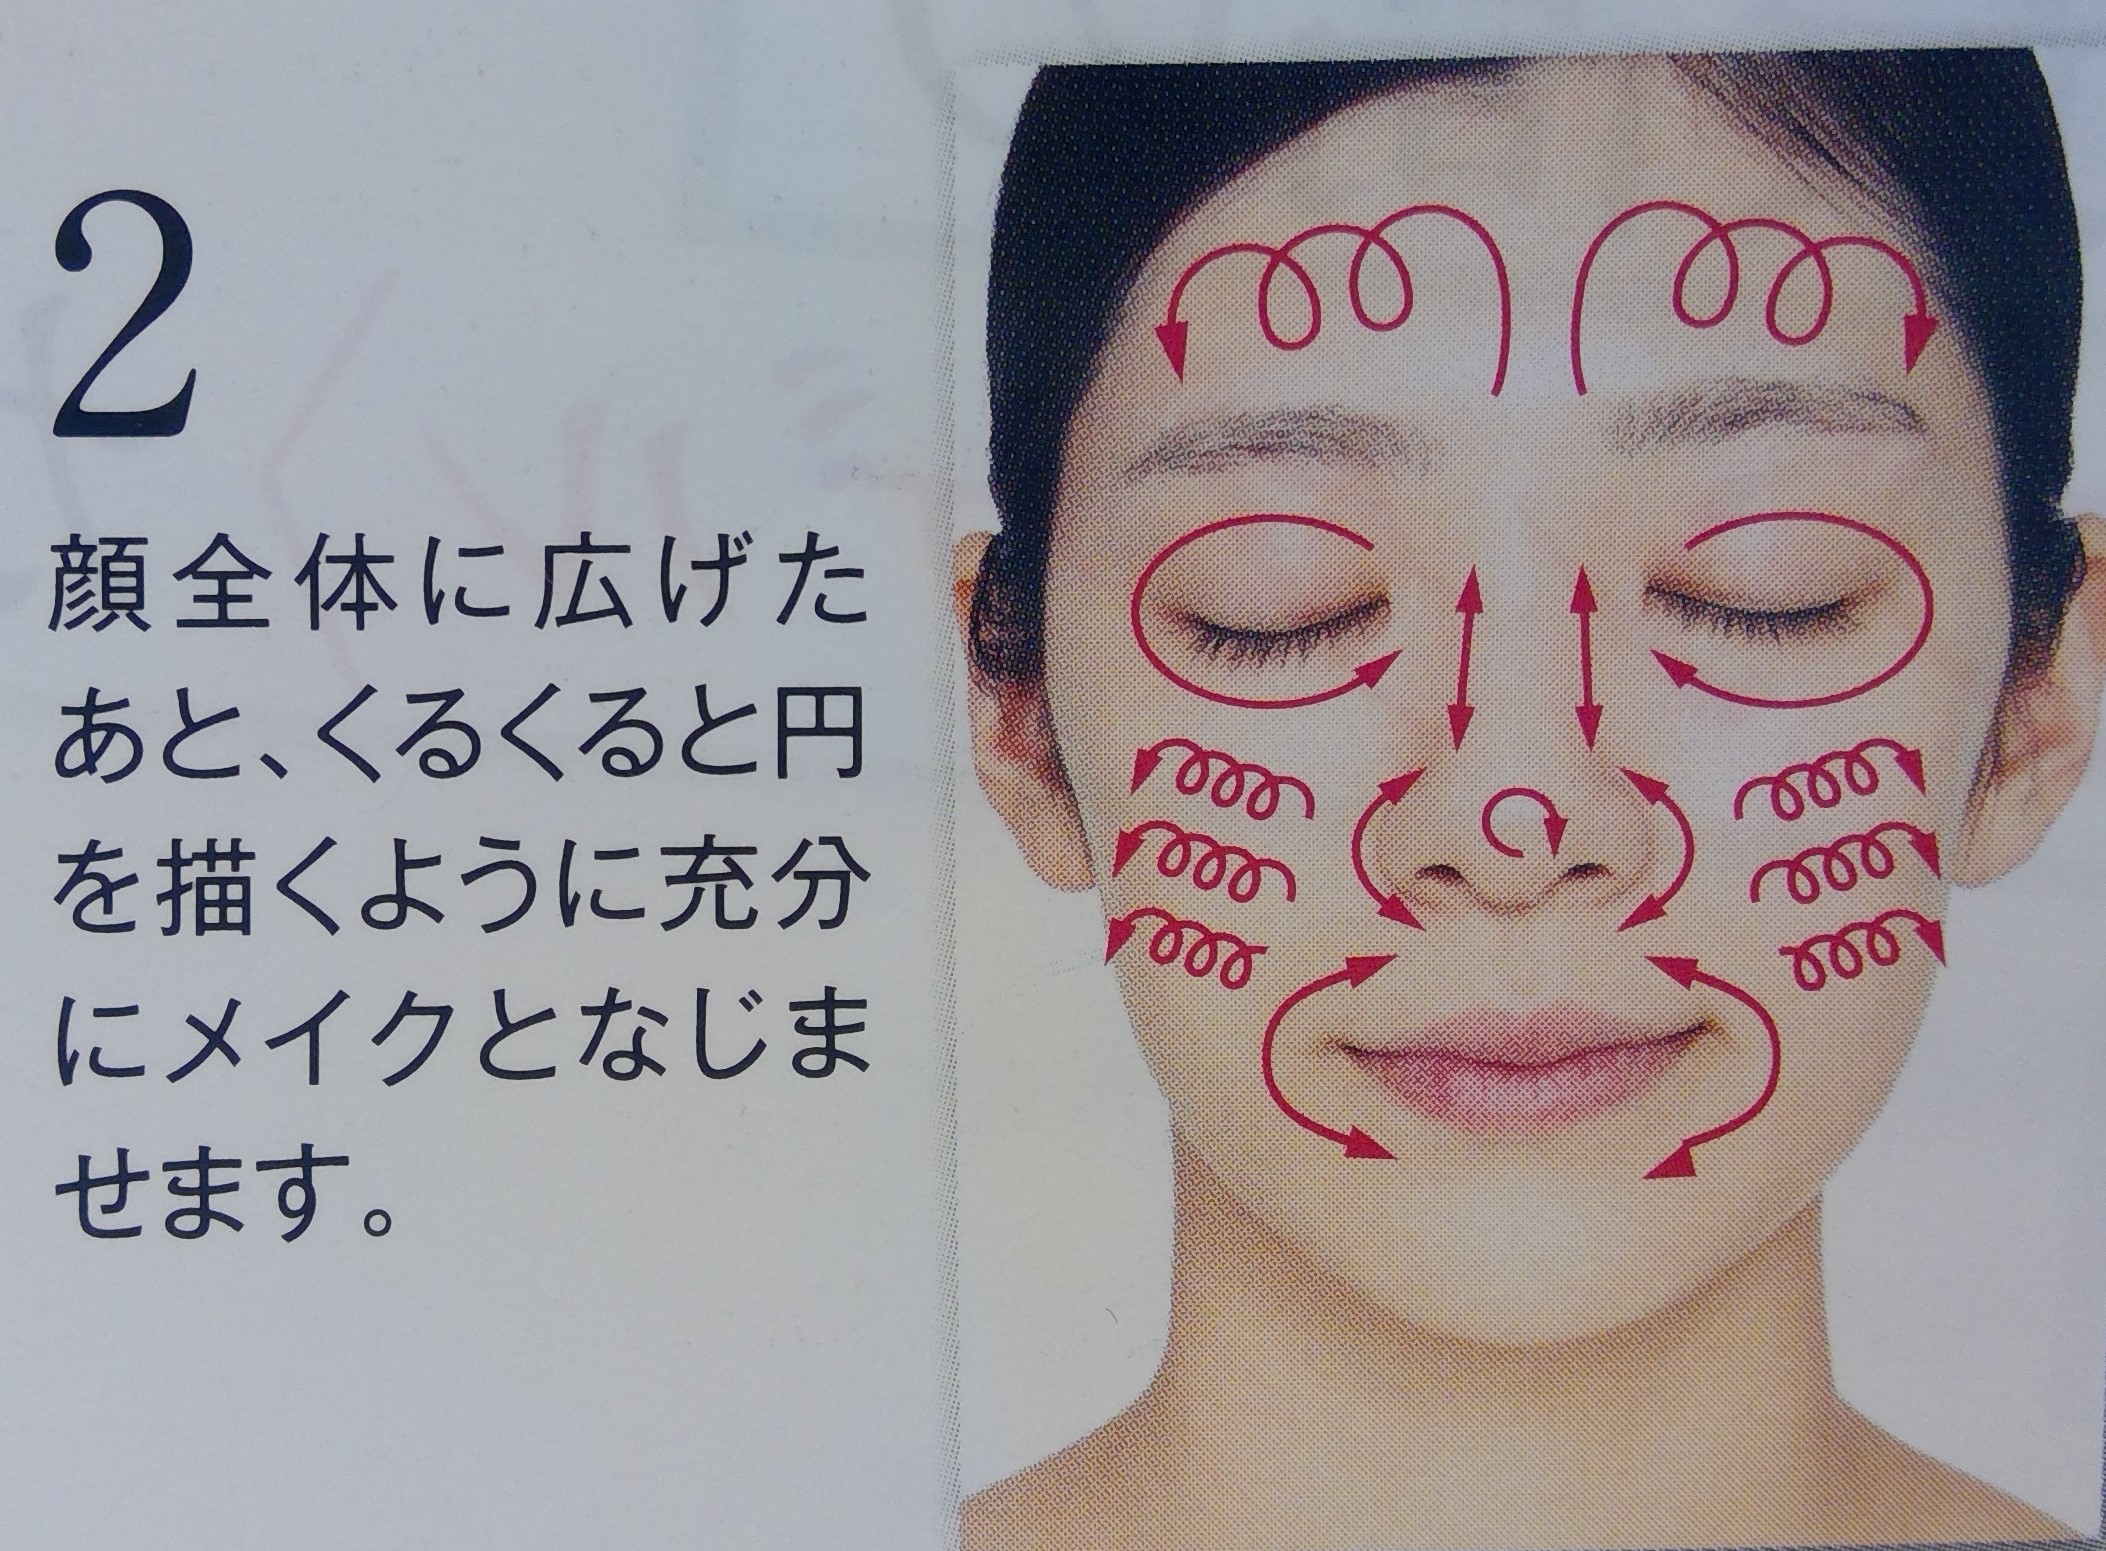 2
顔全体に広げた
あと、くるくると円
を描くように充分
にメイクとなじま
せます。